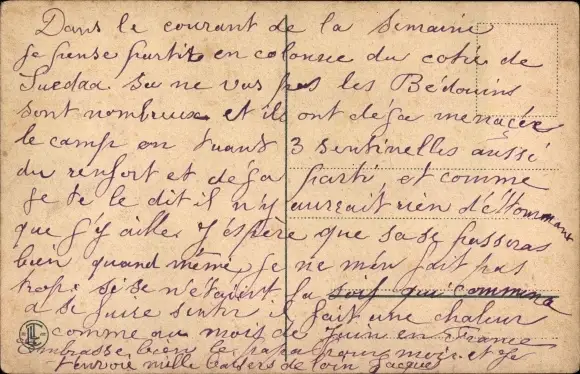 Dans le courant de la Semaine
je pense partir en colonne du coté de
Suedaa sa ne vas pas les Bédouins
sont nombreux et ils ont déja menacée
le camp en tuant 3 sentinelles aussi
du renfort et déja parti et comme
je te le dit il n'y aurrait rien d'éttonnant
que j'y aille J'éspère que sa se passeras
bien quand même je ne m'en fait pas
trop. si se n'étaient la soif qui commence
a se faire sentir il fait une chaleur
comme au mois de Juin en France
Embrasse bien le papa pour moi et Je
t'envoie mille baisers de loin Jacques